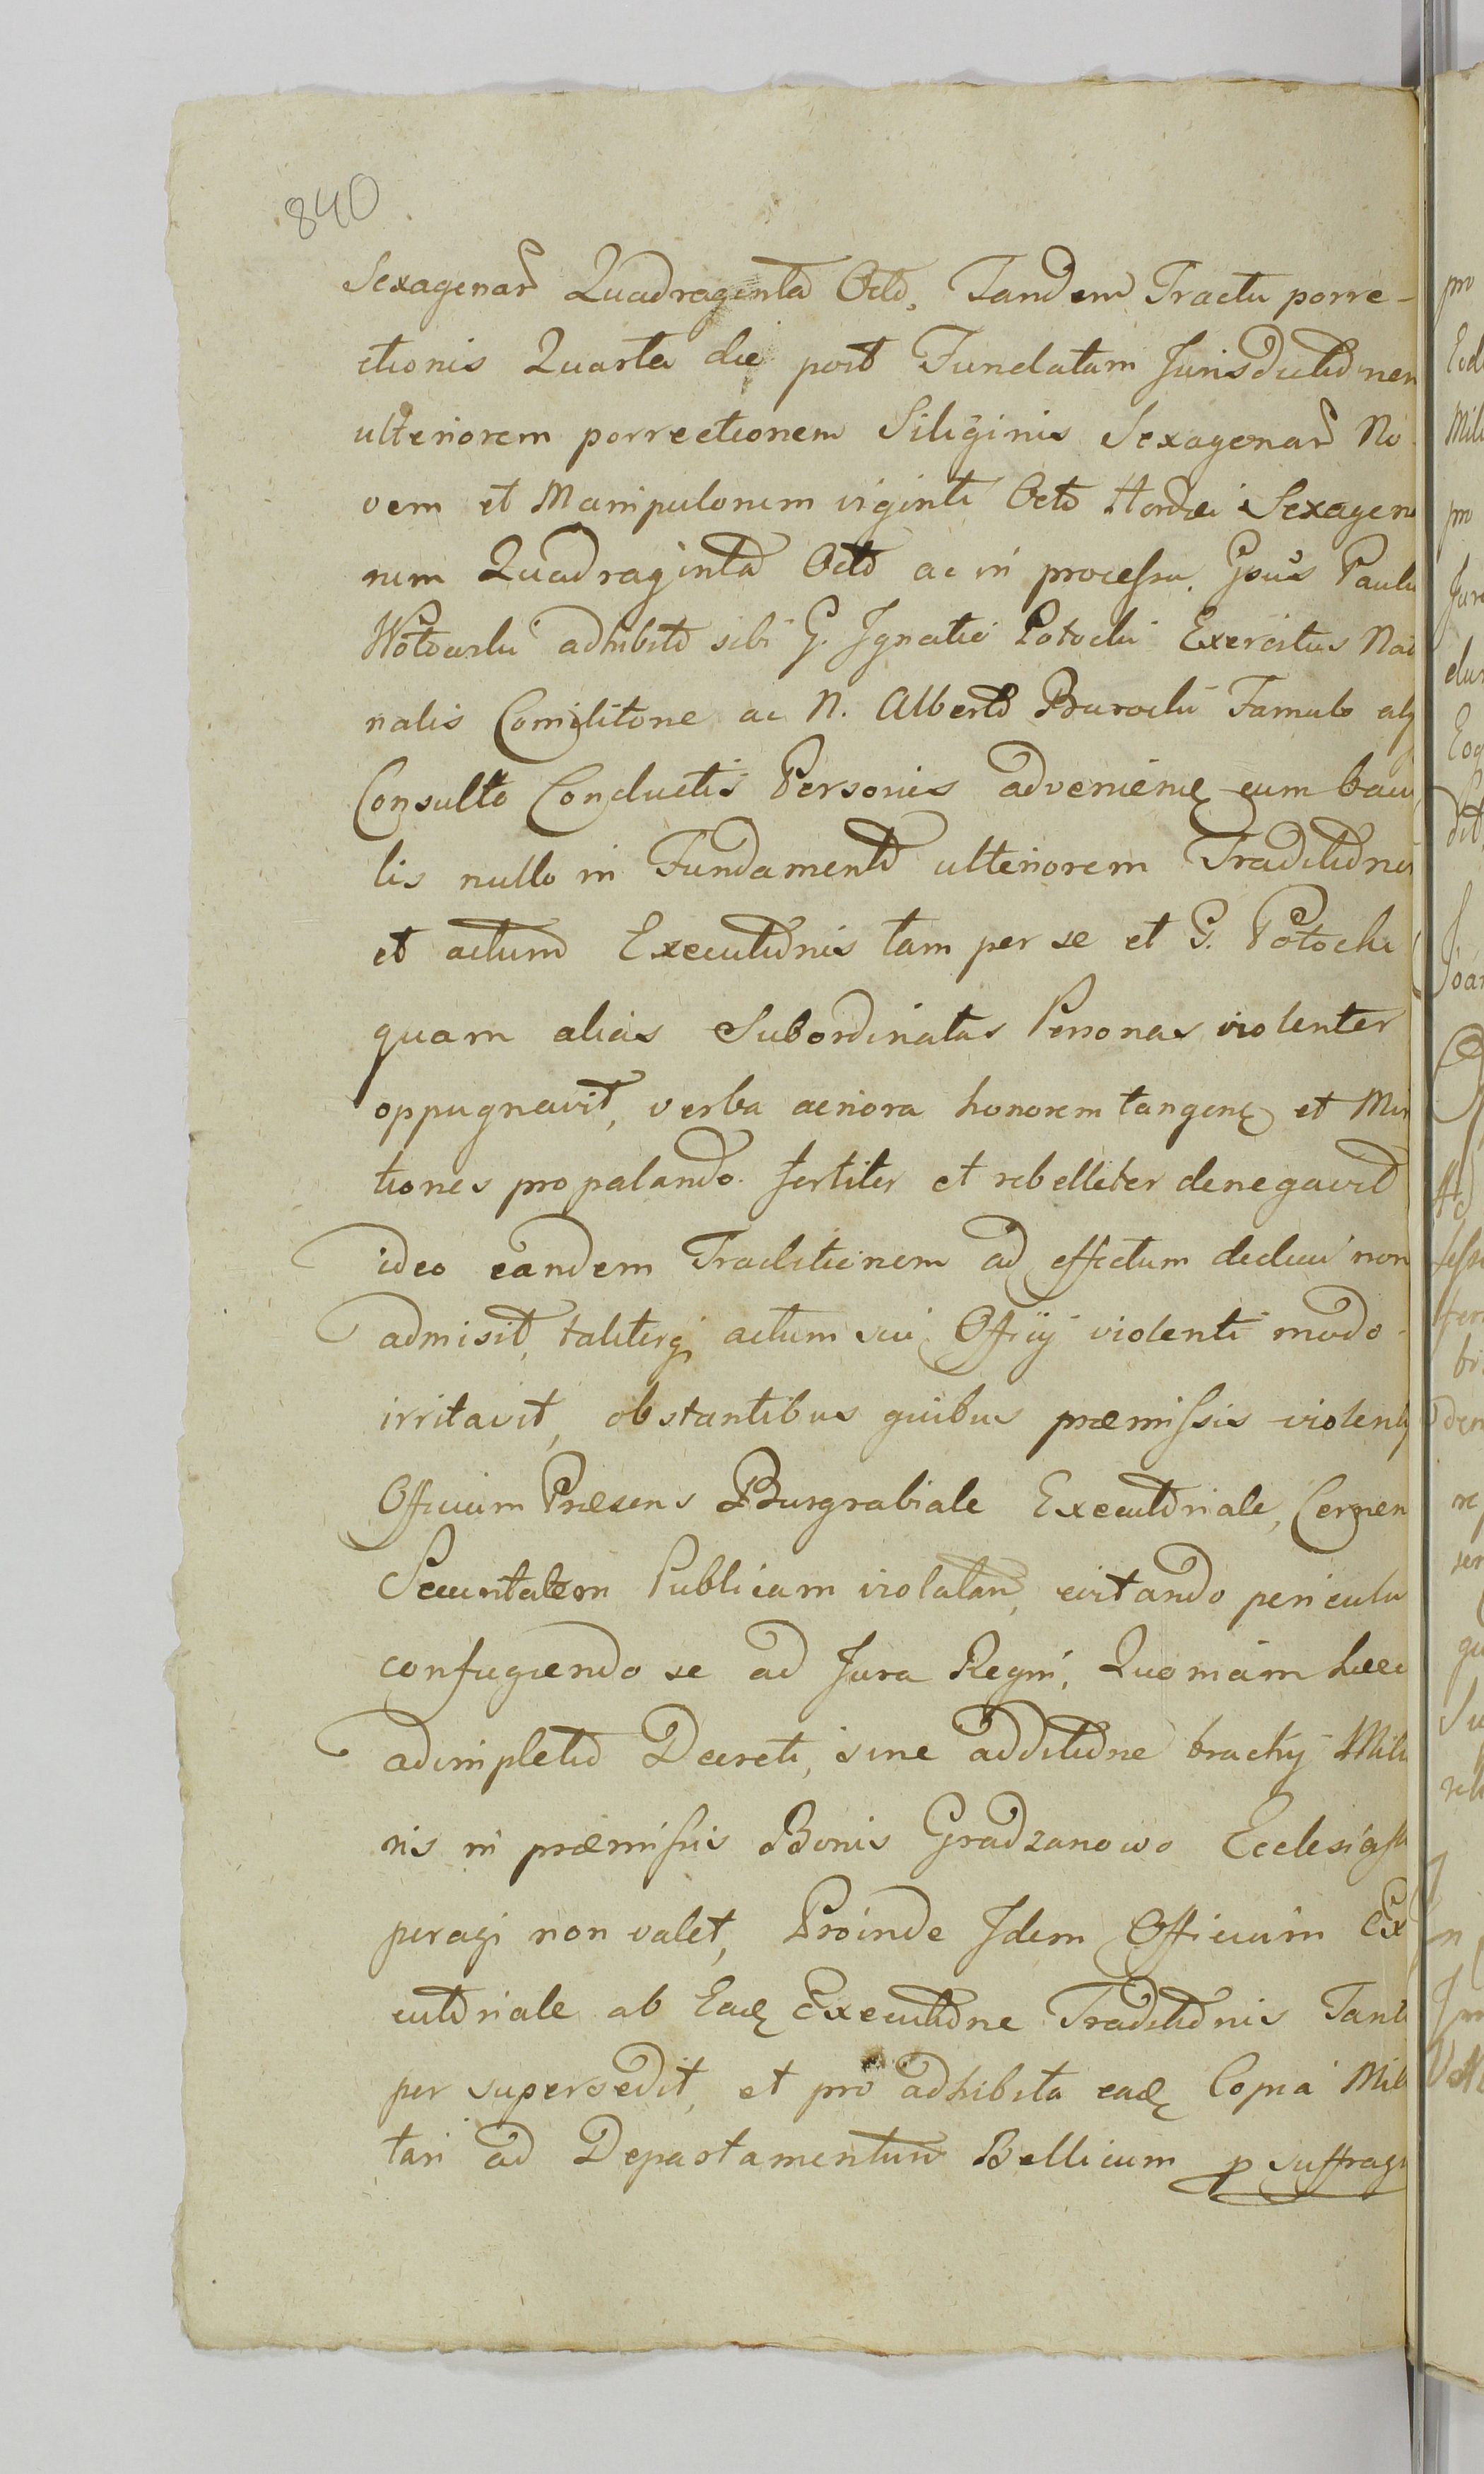 840
Sexagenar Quadraginta Octo, Tandem Tractu porre-
ctionis Quarta die post Fundatam Jurisdictionem
ulteriorem porrectionem Siliginis Sexagenar No
vem et Manipulorum viginti Octo Hordei Sexagena
rum Quadraginta Octo ac in processu. Gsus Paulu
adhibito sibi G. Ignatio Potocki Exercitus Nao
nalis Comilitone ac N. Alberto Famulo
Consulto Conductis Personis advenien cum bacu
lis nullo in Fundamento ulteriorem Traditionem
et actum Executionis tam per se et G. Potocki
quam alias Subordinatas Personas violenter
oppugnavit, verba acriora honorem tangen et Min
tiones propalando. fertiter et rebelliter denegavit
ideo eandem Traditionem ad effectum deduci non
admisit, taliterq actum sui Officij violenti modo
irritavit, obstantibus quibus præmissis violent
Officium Præsens Burgrabiale Executoriale, Cernen
Securitatem Publicam violatam, evitando periculu
confugiendo se ad Jura Regni, Quoniam haec
adimpletio Decreti, sine additione brachij Mili
ris in præmissis Bonis Gradzanowo Ecclesiast
peragi non valet, Proinde Idem Officium Ex
cutoriale ab Ead Executione Traditionis Tant
per supersedit, et pro adhibita ead Copia Mili
tari ad Departamentum Bellicum p suffrag